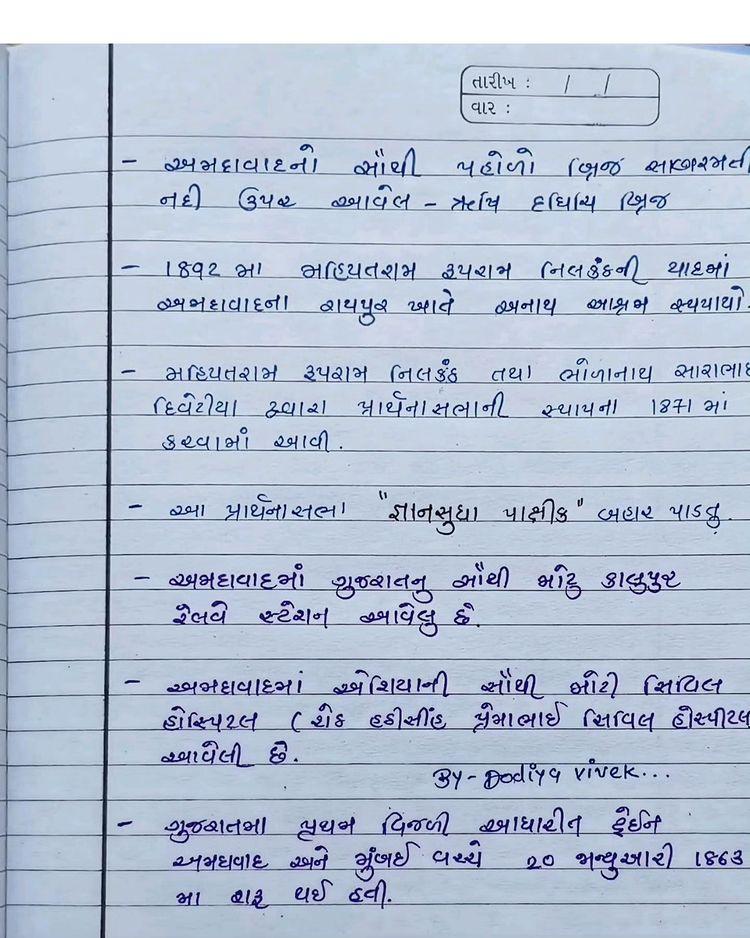 તારીખ : / /
વાર :
- અમદાવાદનો સૌથી પહોળો બ્રિજ સાબરમતી
નદી ઉપર આવેલ - ઋષિ દધિચિ બ્રિજ
- 1892 મા મહિપતરામ રૂપરામ નિલકંઠની યાદમાં
અમદાવાદના રાયપુર ખાતે અનાથ આશ્રમ સ્થપાયો.
- મહિપતરામ રૂપરામ નિલકંઠ તથા ભોળાનાથ સારાભાઇ
દિવેટીયા દ્વારા પ્રાર્થનાસભાની સ્થાપના 1871 માં
કરવામાં આવી.
- આ પ્રાર્થનાસભા "જ્ઞાનસુધા પાક્ષીક" બહાર પાડતુ.
- અમદાવાદમાં ગુજરાતનુ સૌથી મોટુ કાલુપુર
રેલવે સ્ટેશન આવેલુ છે.
- અમદાવાદમાં એશિયાની સૌથી મોટી સિવિલ
હોસ્પિટલ (શેઠ હઠીસીંહ પ્રેમાભાઈ સિવિલ હોસ્પીટલ
આવેલી છે.
By - Dodiya vivek...
- ગુજરાતમા પ્રથમ વિજળી આધારીત ટ્રેઈન
અમદાવાદ અને મુંબઈ વચ્ચે 20 જાન્યુઆરી 1863
મા શરૂ થઈ હતી.